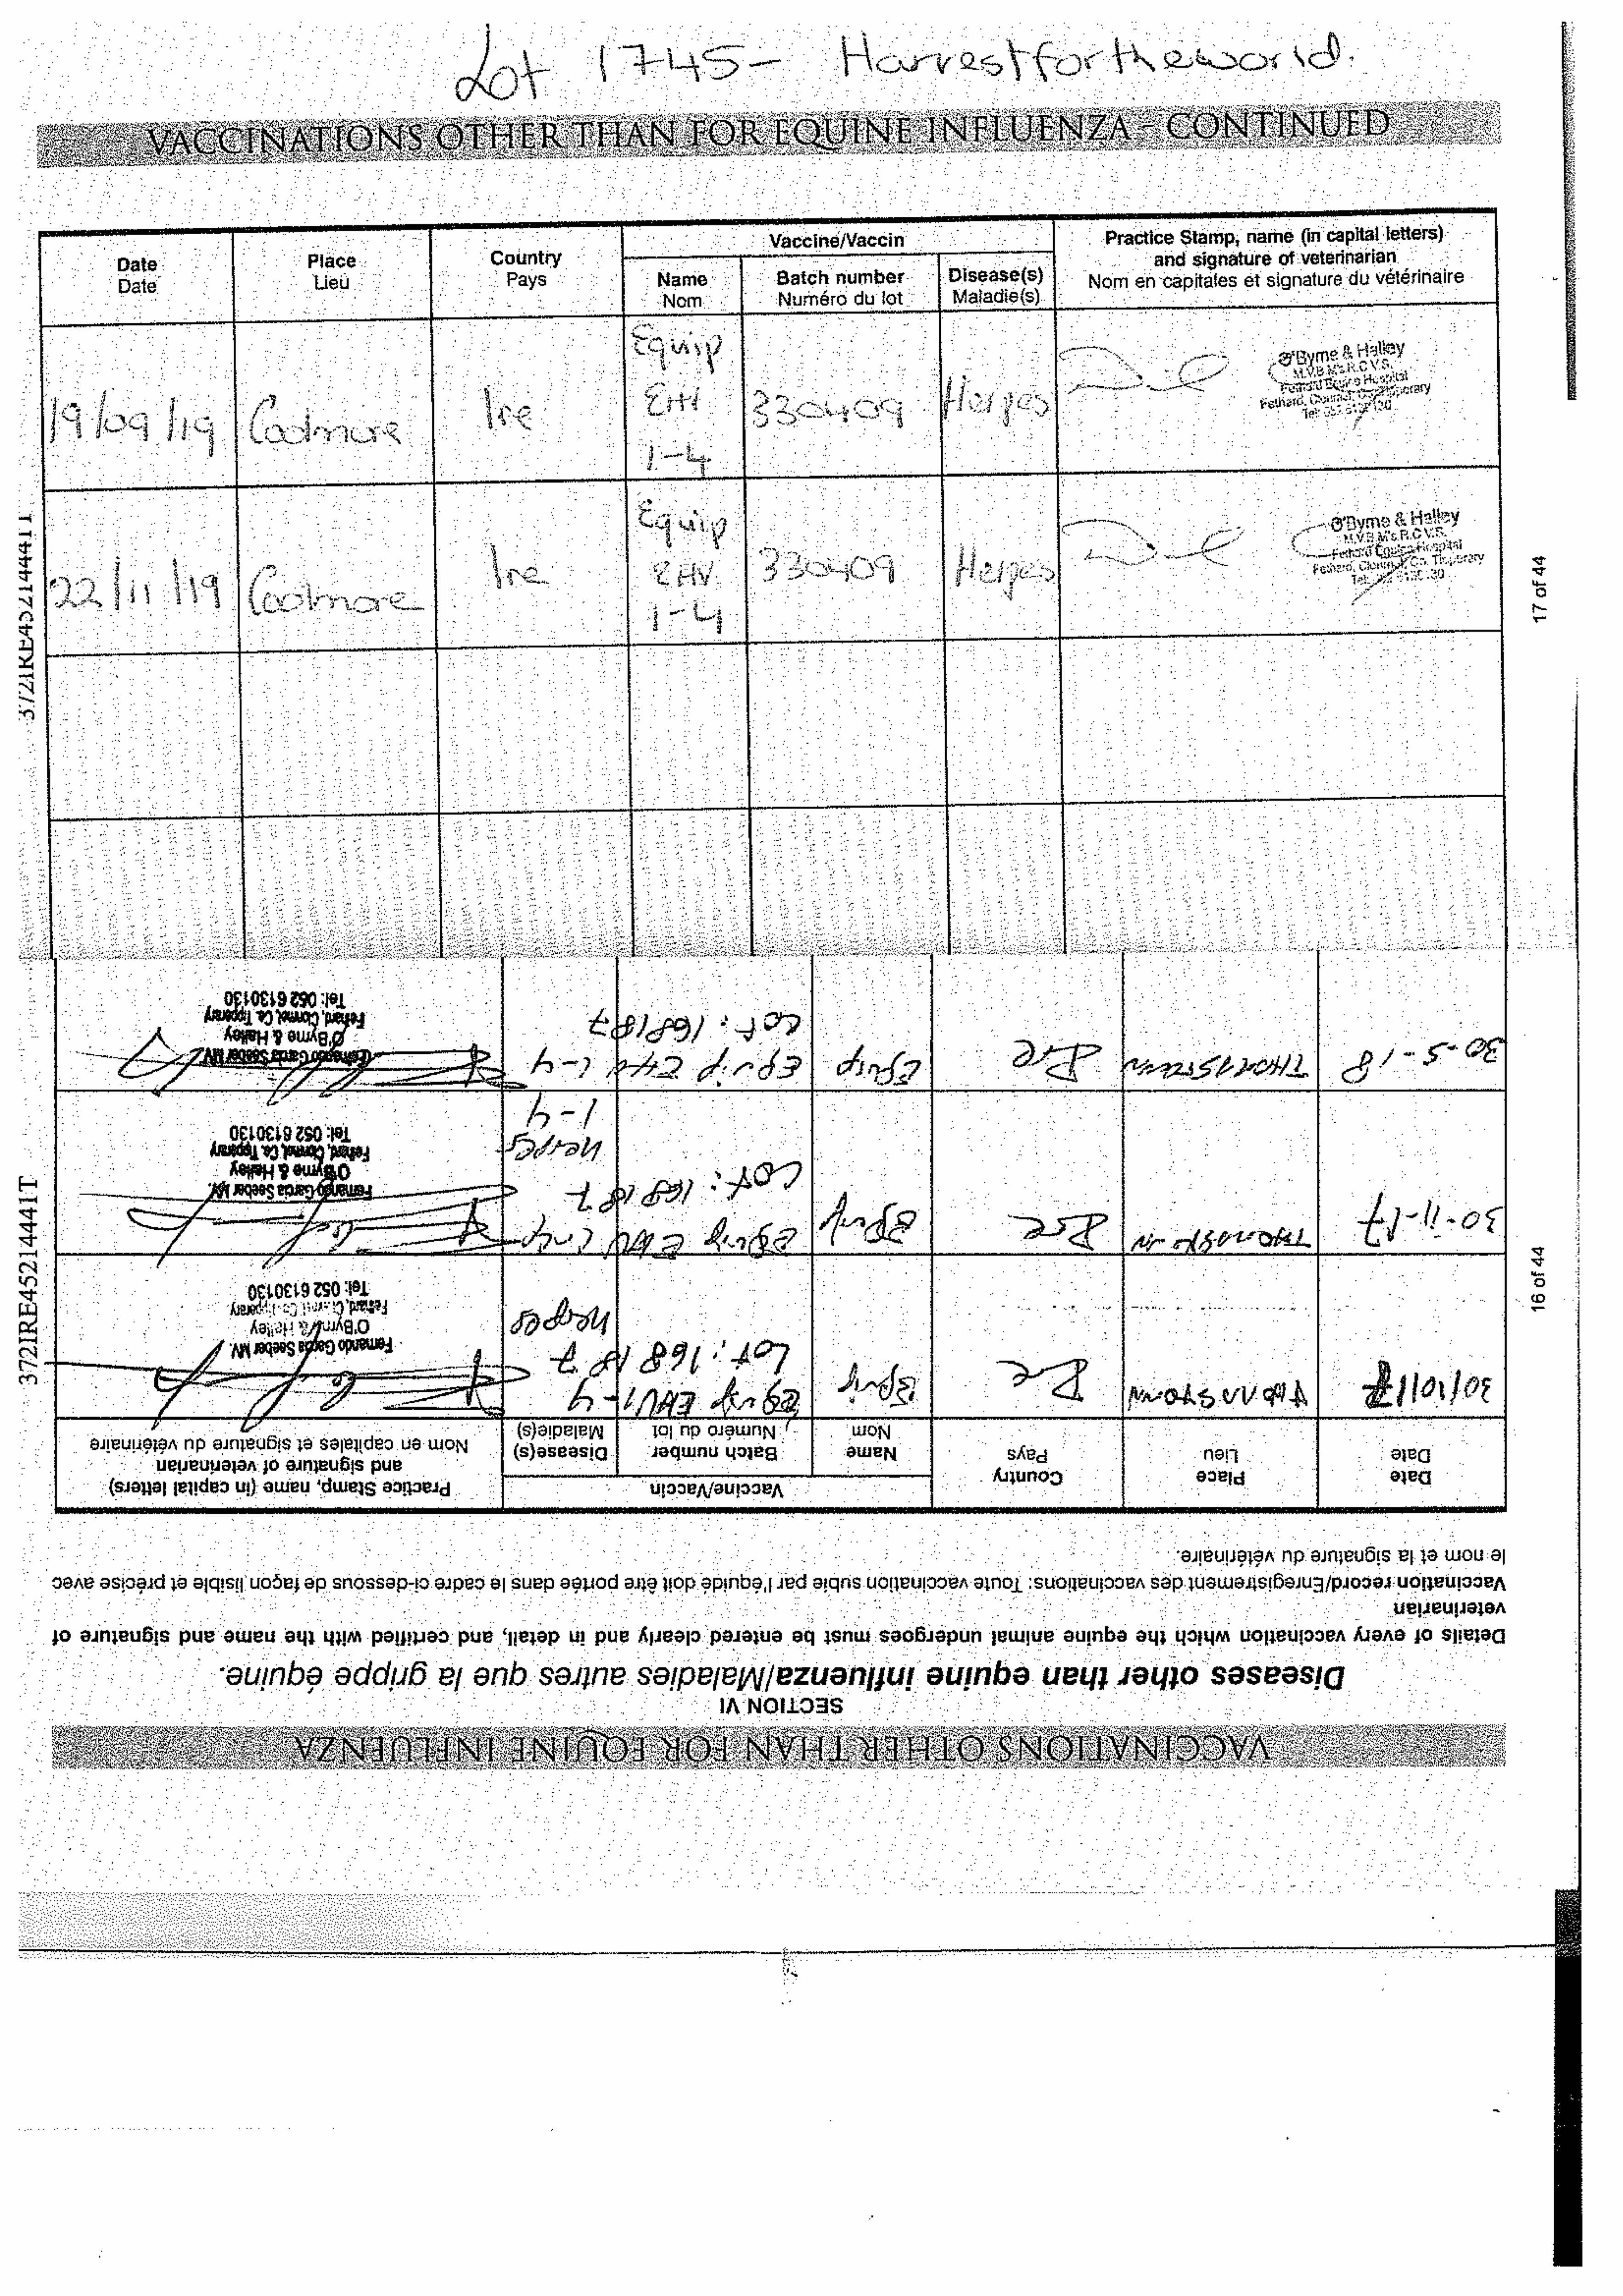 Lot 1745- Harvestfortheworld.
VACCINATIONS OTHER THAN FOR EQUINE INFLUENZA - CONTINUED
Date
Date
Place
Lieu
Country
Pays
Vaccine/Vaccin
Name
Nom
Batch number
Numéro du lot
Disease(s)
Maladie(s)
Practice Stamp, name (in capital letters)
and signature of veterinarian
Nom en capitales et signature du vétérinaire
19/09/19 Coolmore Ire Equip EHV 1-4 330409 Herpes
O'Byrne & Halley
M.V.B. M's R.C.V.S.
Fethard Equine Hospital
Fethard, Clonmel, Co. Tipperary
22/11/19 Coolmore Ire Equip EHV 1-4 330409 Herpes
O'Byrne & Halley
M.V.B. M's R.C.V.S.
Fethard Equine Hospital
Fethard, Clonmel, Co. Tipperary
372IRE45214441T
17 of 44
VACCINATIONS OTHER THAN FOR EQUINE INFLUENZA
SECTION VI
Diseases other than equine influenza/Maladies autres que la grippe équine.
Details of every vaccination which the equine animal undergoes must be entered clearly and in detail, and certified with the name and signature of
veterinarian
Vaccination record/Enregistrement des vaccinations: Toute vaccination subie par l'équidé doit être portée dans le cadre ci-dessous de façon lisible et précise avec
le nom et la signature du vétérinaire.
Date
Date
Place
Lieu
Country
Pays
Vaccine/Vaccin
Name
Nom
Batch number
Numéro du lot
Disease(s)
Maladie(s)
Practice Stamp, name (in capital letters)
and signature of veterinarian
Nom en capitales et signature du vétérinaire
30/10/17 Equip EHV 1-4
Lot: 168187
Herpes
Fernando Garcia Seeber MV.
O'Byrne & Halley
Fethard, Clonmel, Co. Tipperary
Tel: 052 6130130
30-11-17 Equip EHV
Lot: 168187
Herpes
1-4
Fernando Garcia Seeber MV.
O'Byrne & Halley
Fethard, Clonmel, Co. Tipperary
Tel: 052 6130130
30-5-18 THOMASTOWN Equip Equip EHV 1-4
Lot: 168187
Fernando Garcia Seeber MV.
O'Byrne & Halley
Fethard, Clonmel, Co. Tipperary
Tel: 052 6130130
372IRE45214441T
16 of 44